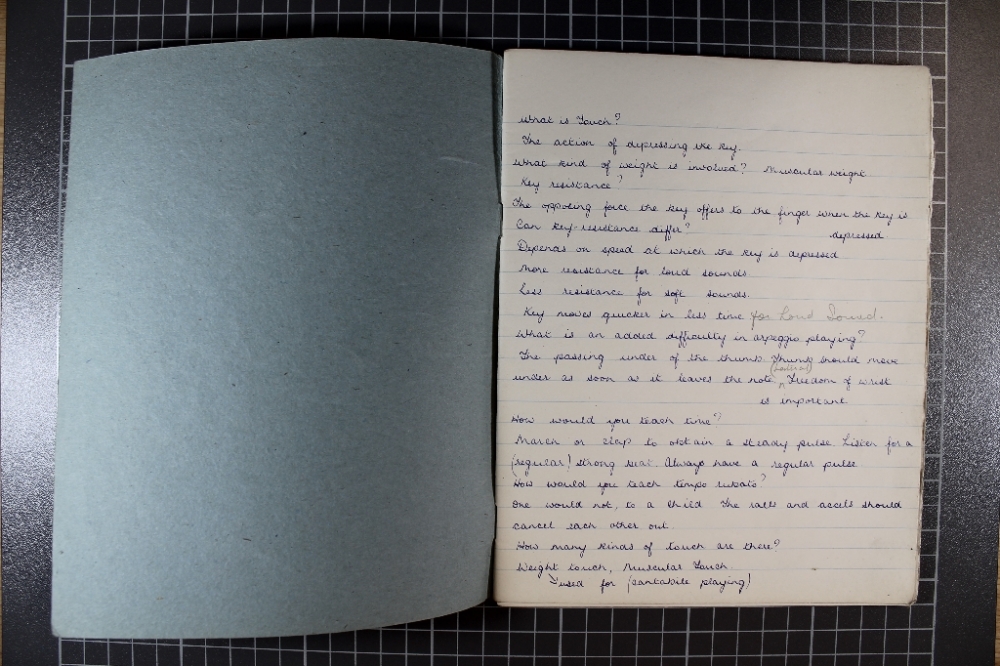 What is Touch?
The action of depressing the key.
What kind of weight is involved? Muscular weight.
Key resistance?
The opposing force the key offers to the finger when the key is
depressed.
Can key-resistance differ?
Depends on speed at which the key is depressed
More resistance for loud sounds
Less resistance for soft sounds.
Key moves quicker in less time for Loud Sound.
What is an added difficulty in arpeggio playing?
The passing under of the thumb. Thumb should move
under as soon as it leaves the note (lateral) Freedom of wrist
is important
How would you teach time?
March or clap to obtain a steady pulse. Listen for a
(regular) strong beat. Always have a regular pulse
How would you teach tempo rubato?
One would not, to a child The ralls and accels should
cancel each other out.
How many kinds of touch are there?
Weight touch, Muscular Touch
used for (cantabile playing)